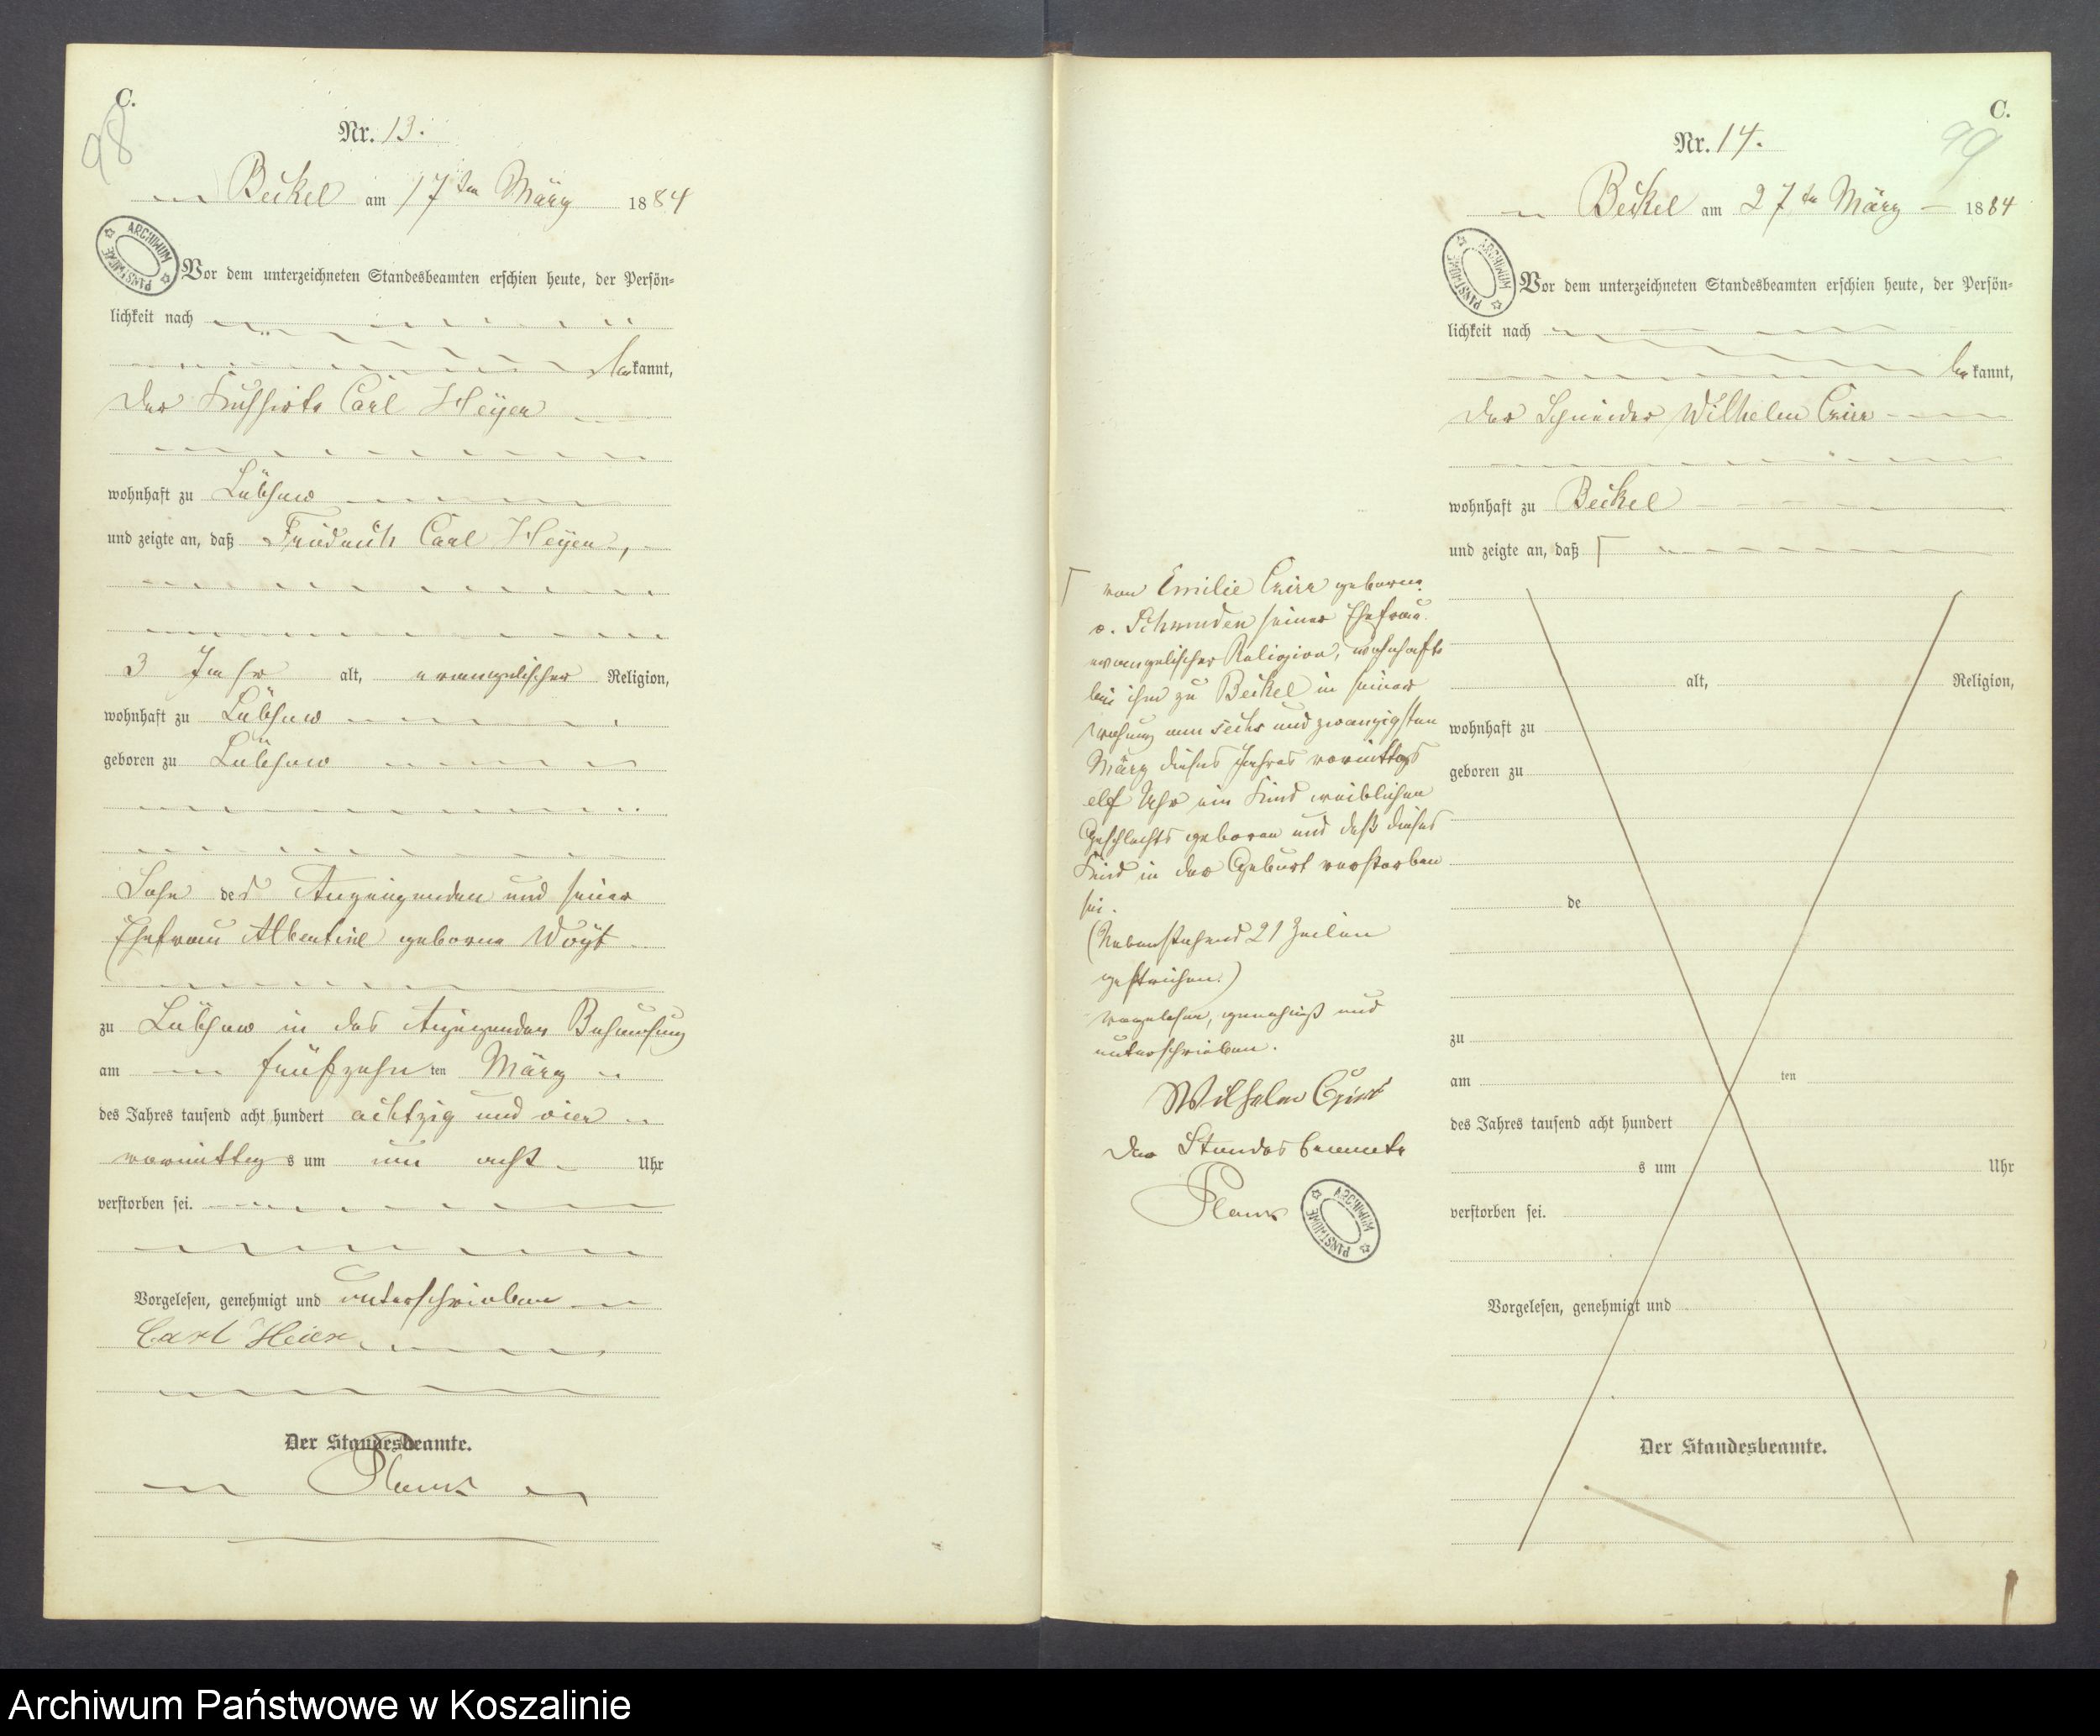 C.
98
Nr. 13.
Beckel am 17ten März 1884
ARCHIWUM PAŃSTWOWE
Vor dem unterzeichneten Standesbeamten erschien heute, der Persön-
lichkeit nach
bekannt,
der Carl Heyer
wohnhaft zu Lübchow
und zeigte an, daß Friedrich Carl Heyer,
3 Jahr alt, evangelischer Religion,
wohnhaft zu Lübchow
geboren zu Lübchow
Sohn des Anzeigenden und seiner
Ehefrau Albertine geborene Woyt
zu Lübchow in des Anzeigenden Behausung
am fünfzehnten März
des Jahres tausend acht hundert achtzig und vier
vormittags um um acht Uhr
verstorben sei.
Vorgelesen, genehmigt und unterschrieben
Carl Heier
Der Standesbeamte.
C.
99
Nr. 14.
Beckel am 27ten März 1884
ARCHIWUM PAŃSTWOWE
Vor dem unterzeichneten Standesbeamten erschien heute, der Persön-
lichkeit nach
bekannt,
der Schneider Wilhelm
wohnhaft zu Beckel
und zeigte an, daß
von Emilie geborene
v. seiner Ehefrau
evangelischer Religion, wohnhaft
bei ihm zu Beckel in seiner
Wohnung am sechs und zwanzigsten
März dieses Jahres vormittags
elf Uhr ein Kind weiblichen
Geschlechts geboren und daß dieses
Kind in der Geburt verstorben
sei.
(Nebenstehend 21 Zeilen
gestrichen.)
Vorgelesen, genehmigt und
unterschrieben.
Wilhelm
Der Standesbeamte
ARCHIWUM PAŃSTWOWE
alt, Religion,
wohnhaft zu
geboren zu
de
zu
am ten
des Jahres tausend acht hundert
s um Uhr
verstorben sei.
Vorgelesen, genehmigt und
Der Standesbeamte.
Archiwum Państwowe w Koszalinie